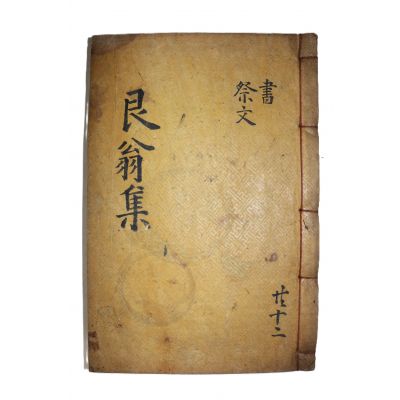 書
祭文
共十二
艮翁集